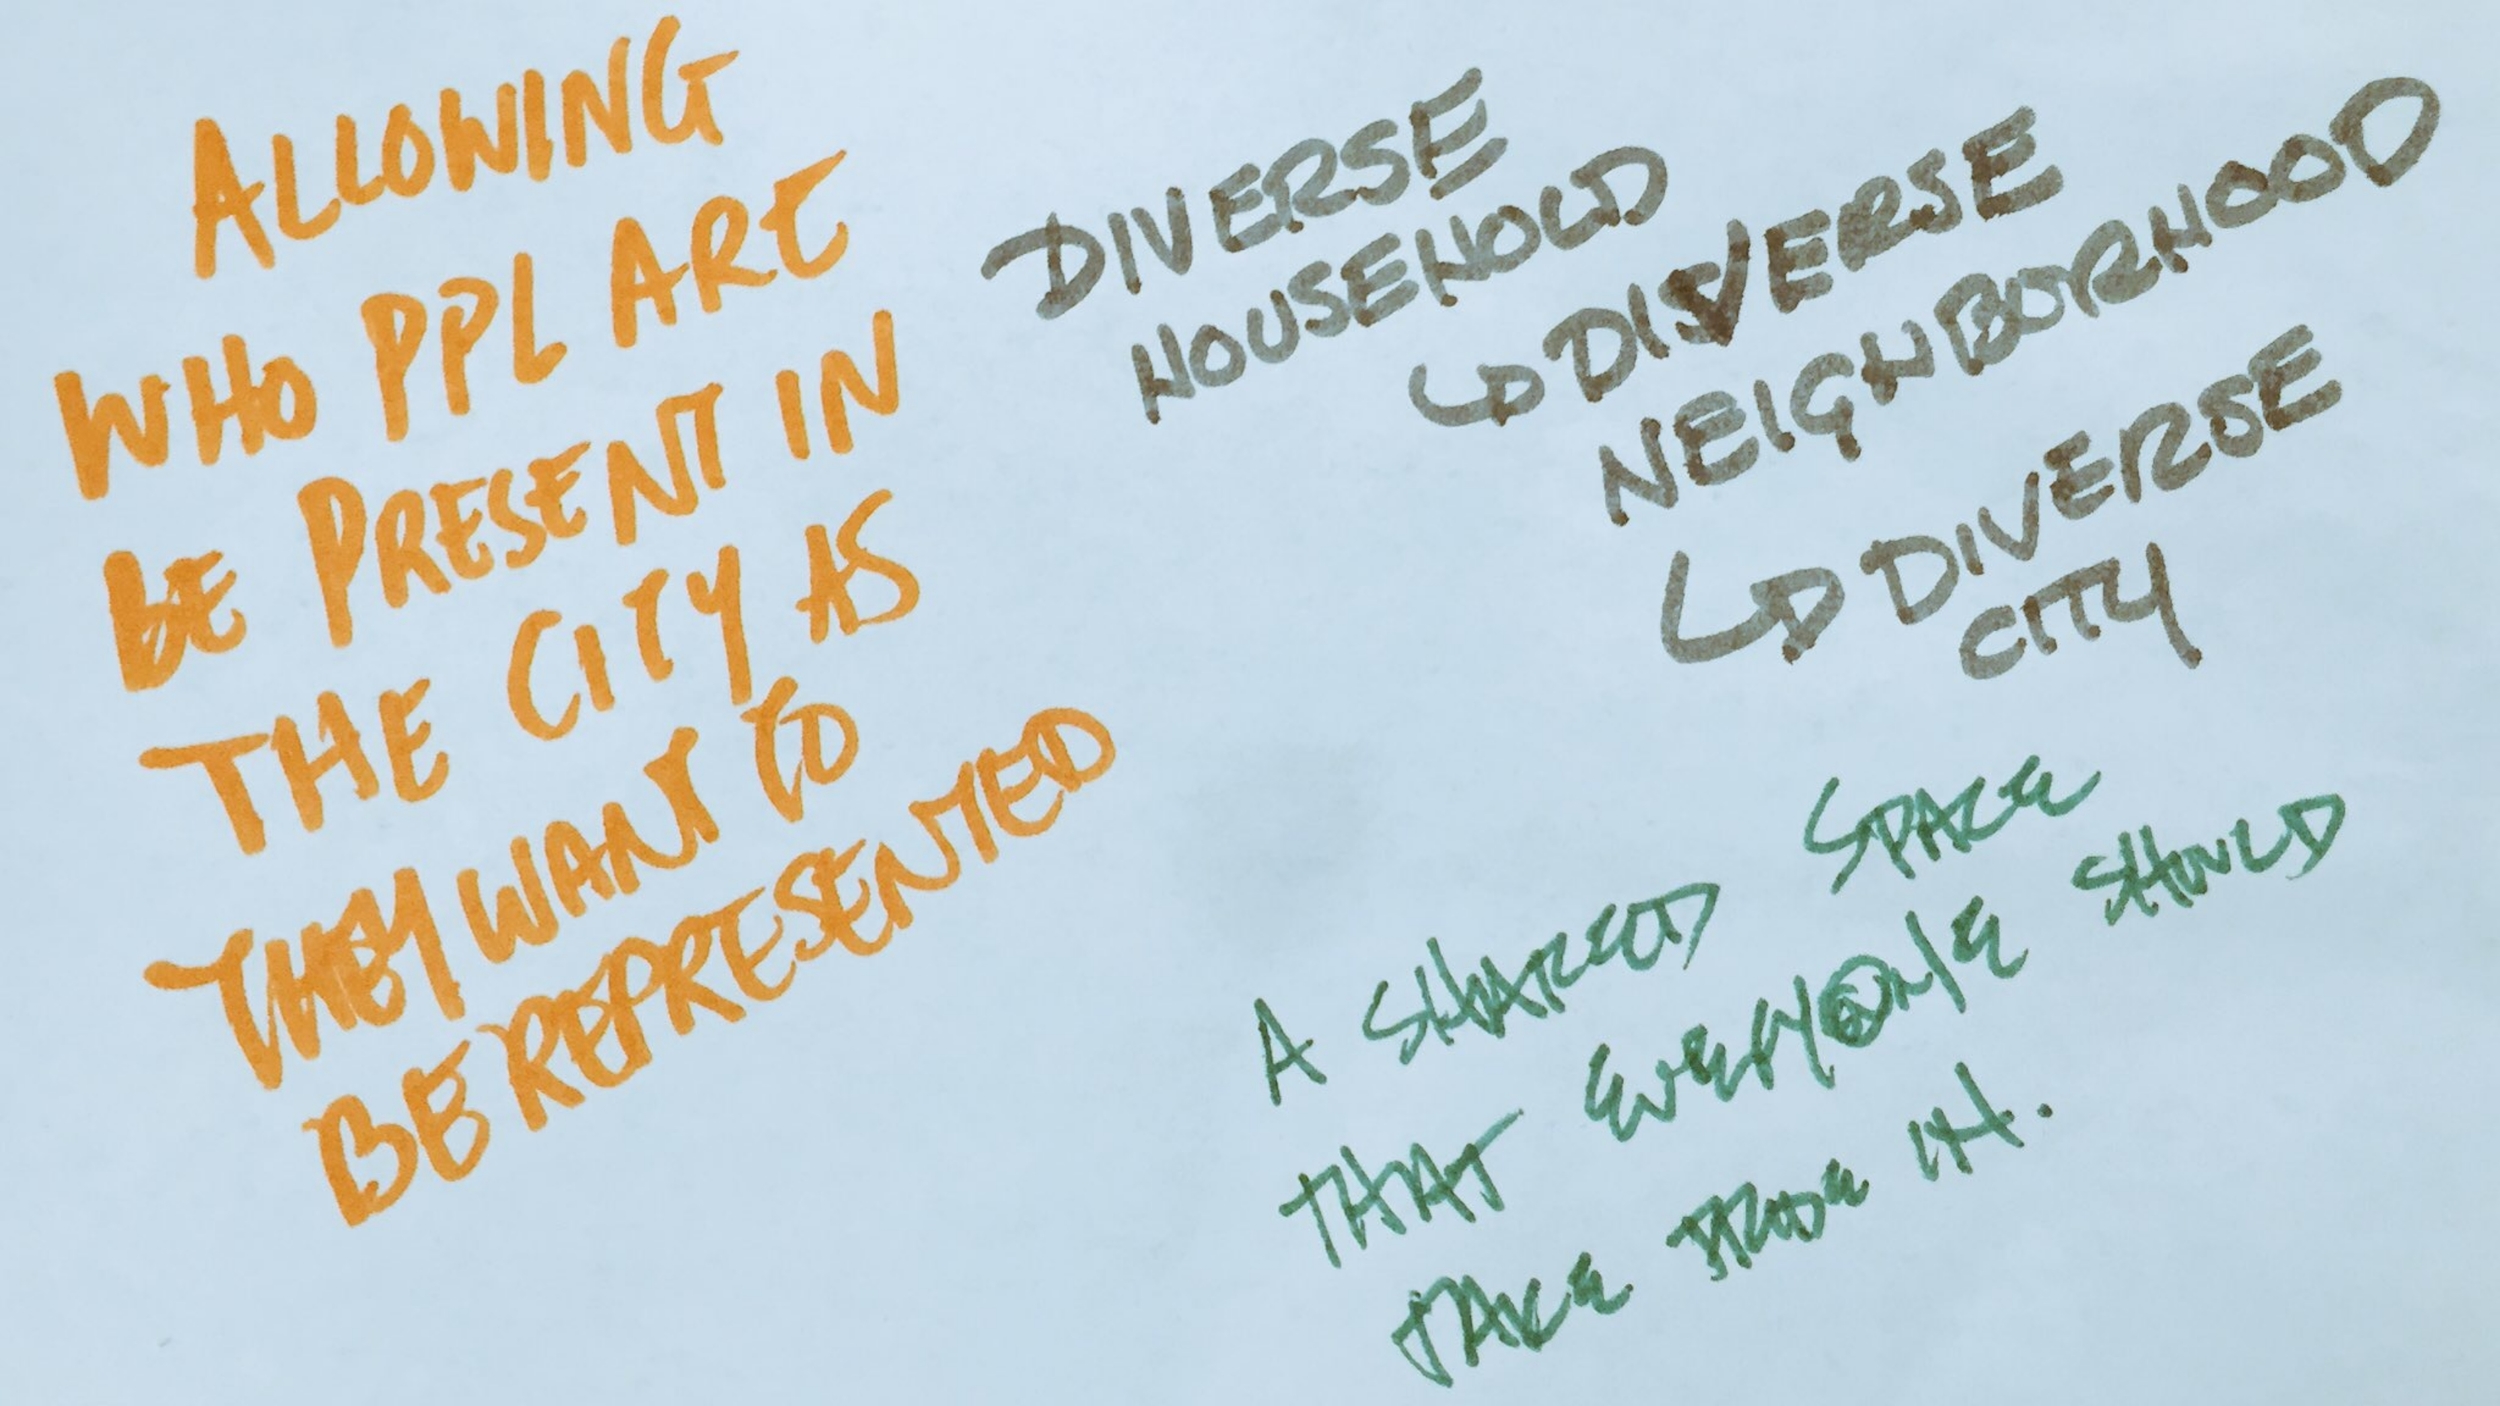 ALLOWING
WHO PPL ARE
BE PRESENT IN
THE CITY AS
THEY WANT TO
BE REPRESENTED
DIVERSE
HOUSEHOLD
↳ DIVERSE
NEIGHBORHOOD
↳ DIVERSE
CITY
A SHARED SPACE
THAT EVERYONE SHOULD
TAKE PRIDE IN.